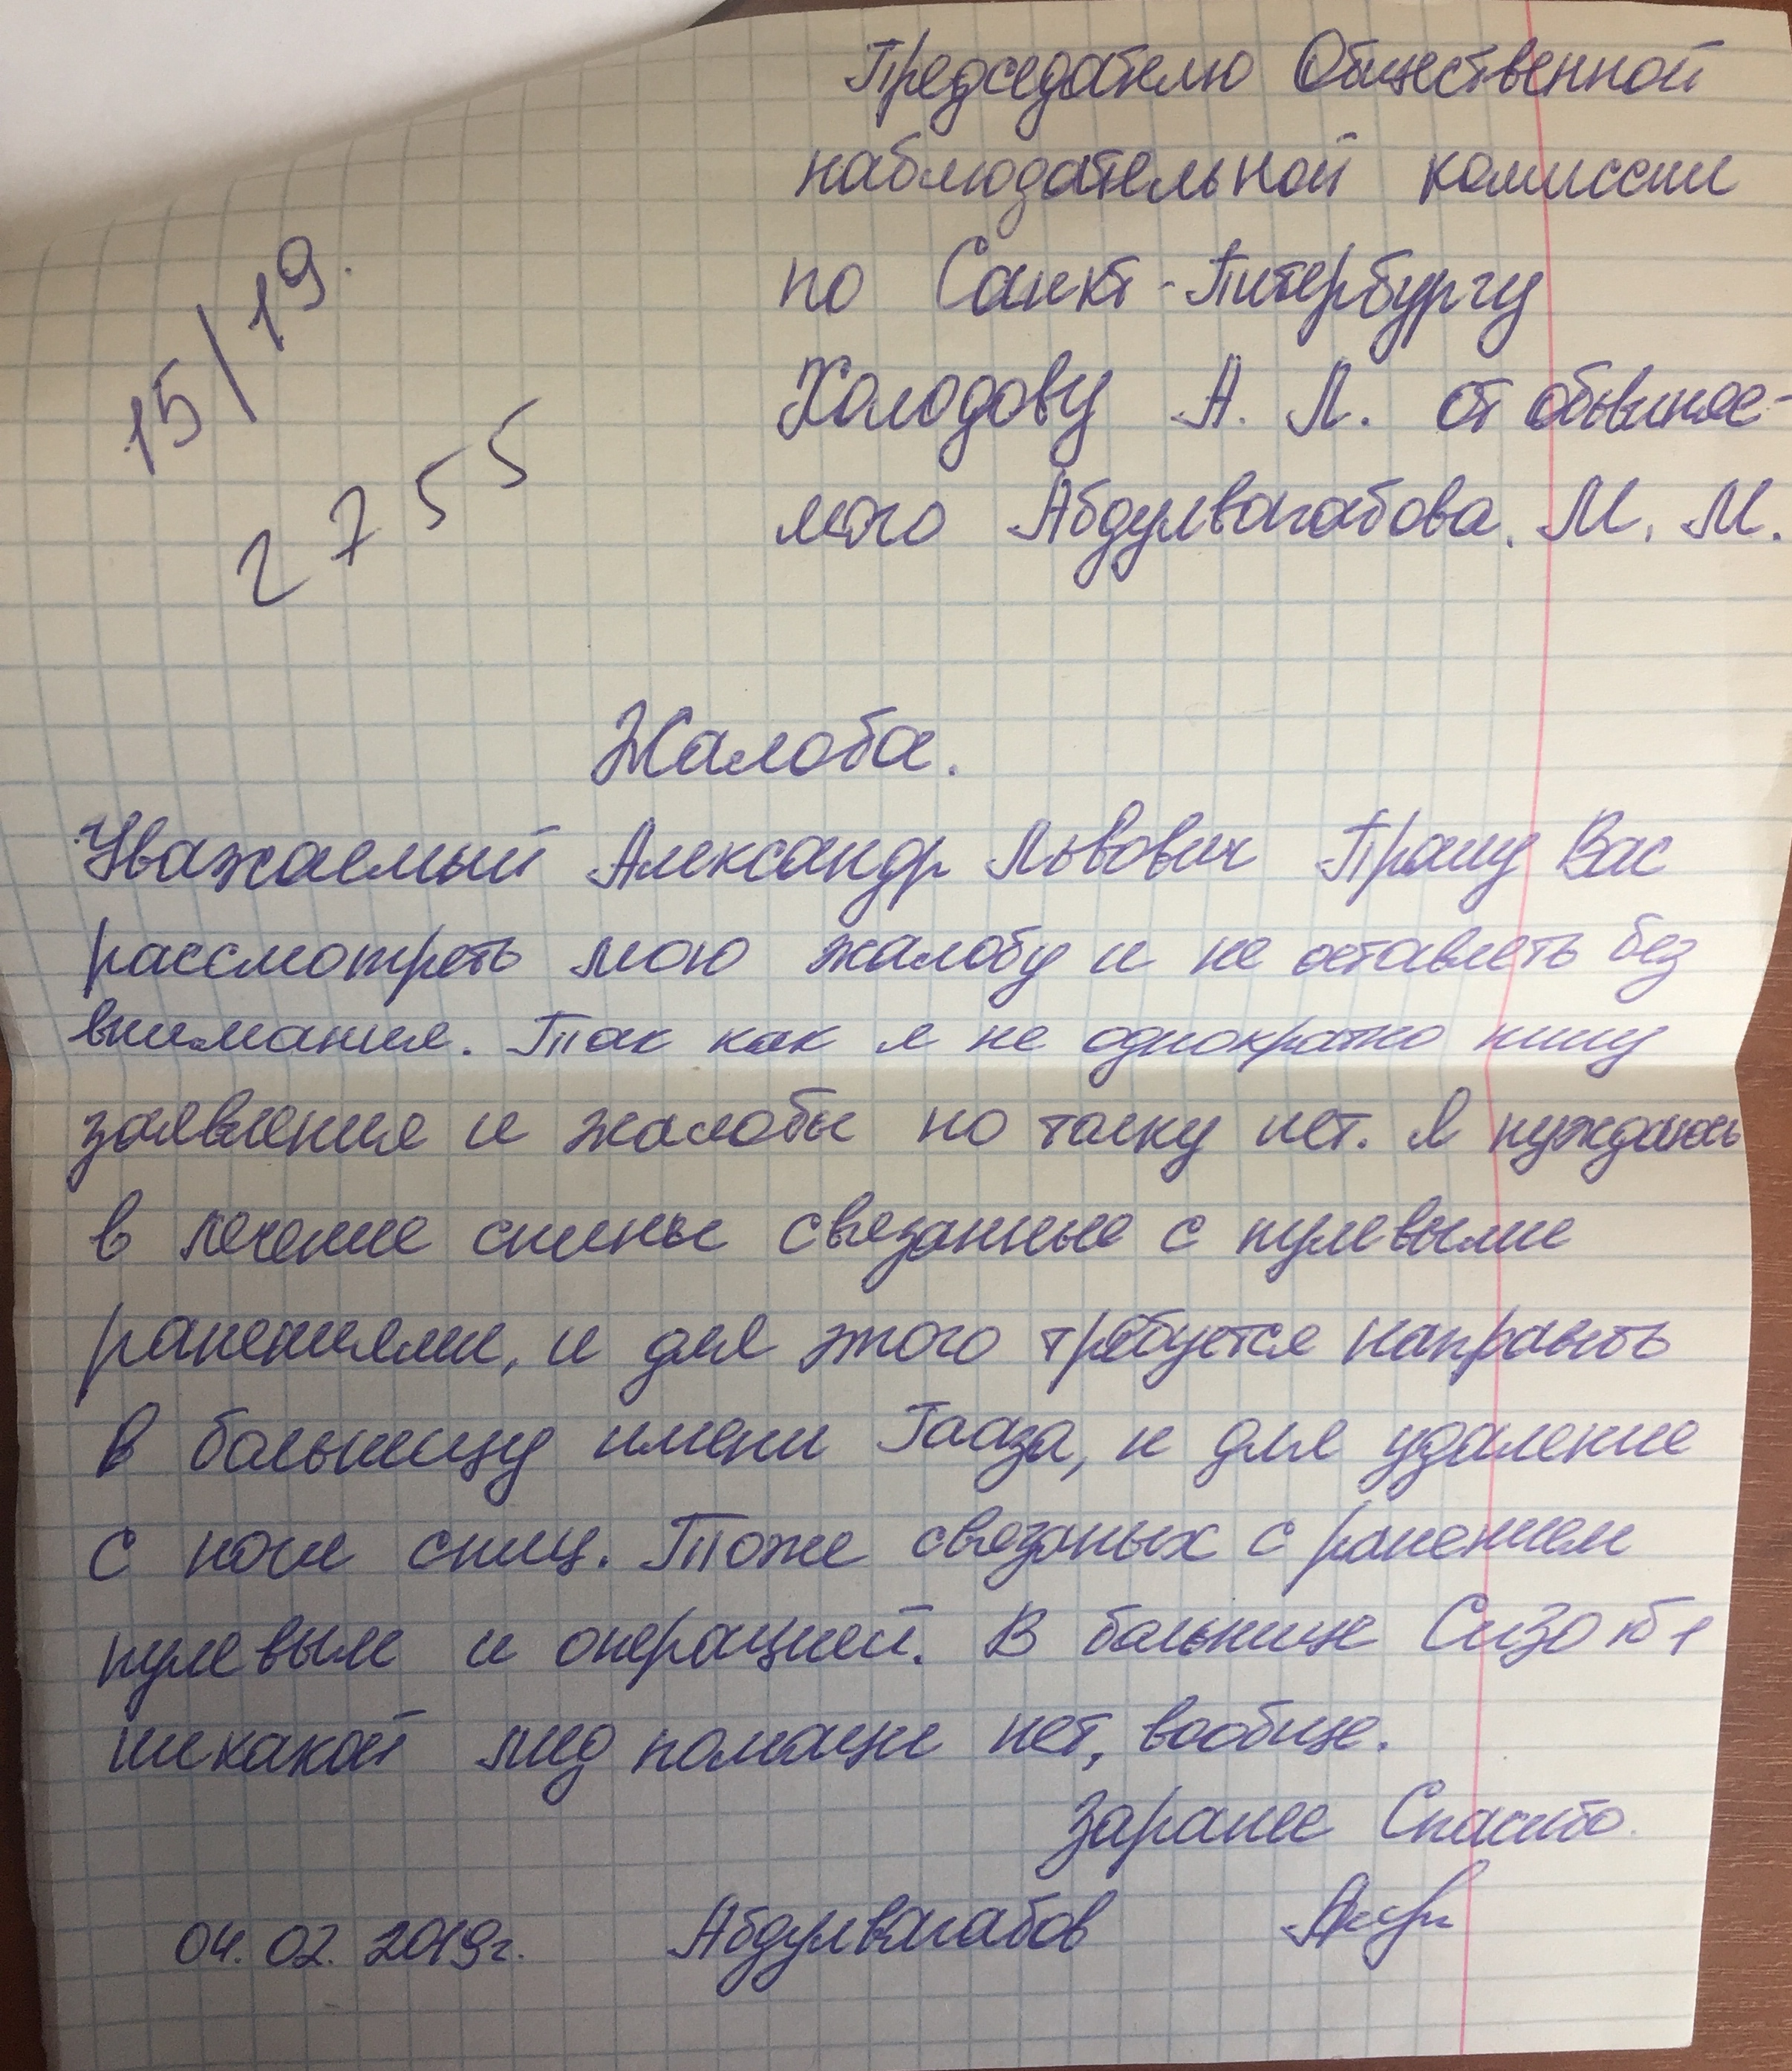 Председателю Общественной
наблюдательной комиссии
по Санкт-Питербургу
Холодову А. Л. от обвиняе-
мого Абдулвагабова. М. М.
15/19.
2755
Жалоба.
Уважаемый Александр Львович Прошу Вас
рассмотреть мою жалобу и не оставлеть без
внимания. Так как я не однократно пишу
заявления и жалобы но толку нет. Я нуждаюсь
в лечение спины связанные с пулевыми
ранениями, и для этого требуется направить
в больницу имени Гааза, и для удаление
с ноги спиц. Тоже связаных с ранением
пулевым и операцией. В больнице Сизо №1
никакой мед помощи нет, вообще.
Заранее Спасибо.
04.02.2019г. Абдулвагабов